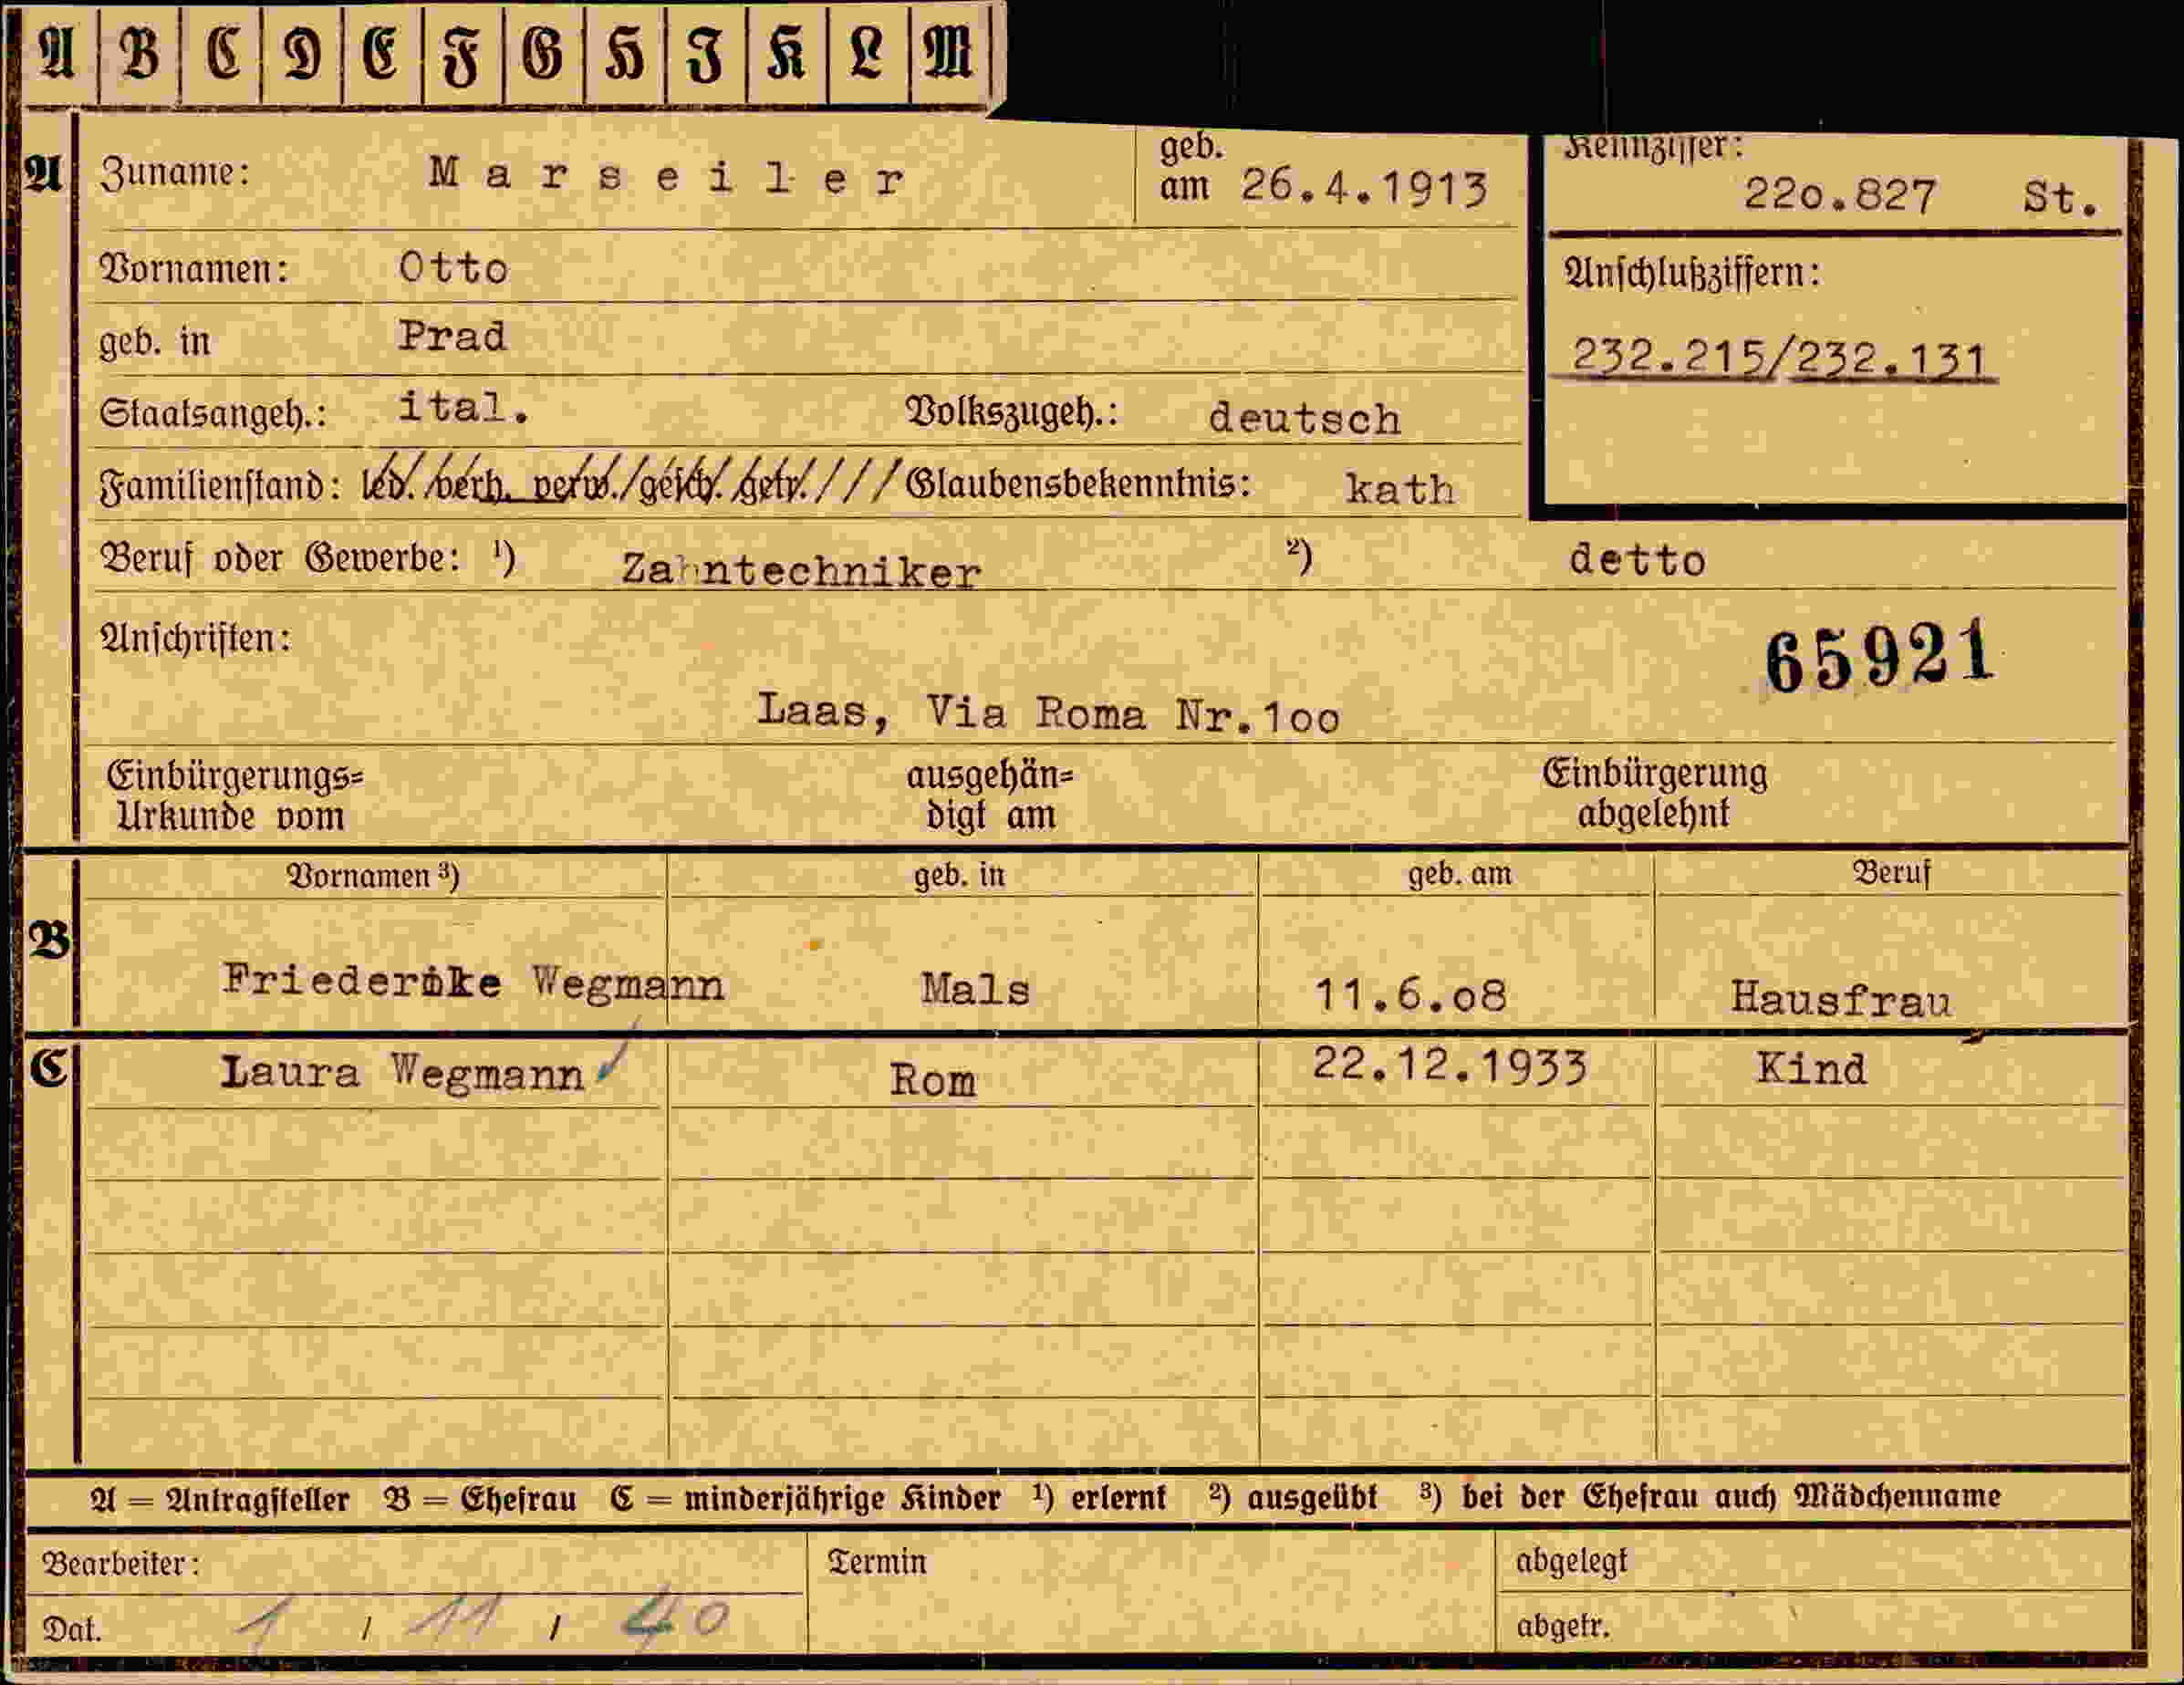 A B C D E F G H I K L M
A Zuname: Marseiler geb. am 26.4.1913 Kennziffer: 22o.827 St.
Vornamen: Otto Anschlußziffern:
geb. in Prad 232.215/232.131
Staatsangeh.: ital. Volkszugeh.: deutsch
Familienstand: led. verh. verw. gesch. getr. / / / Glaubensbekenntnis: kath
Beruf oder Gewerbe: ¹) Zahntechniker ²) detto
Anschriften: 65921
Laas, Via Roma Nr.1oo
Einbürgerungs= ausgehän= Einbürgerung
Urkunde vom digt am abgelehnt
Vornamen ³) geb. in geb. am Beruf
B Friederike Wegmann Mals 11.6.o8 Hausfrau
C Laura Wegmann Rom 22.12.1933 Kind
A = Antragsteller B = Ehefrau C = minderjährige Kinder ¹) erlernt ²) ausgeübt ³) bei der Ehefrau auch Mädchenname
Bearbeiter: Termin abgelegt
Dat. 1 / 11 / 40 abgetr.